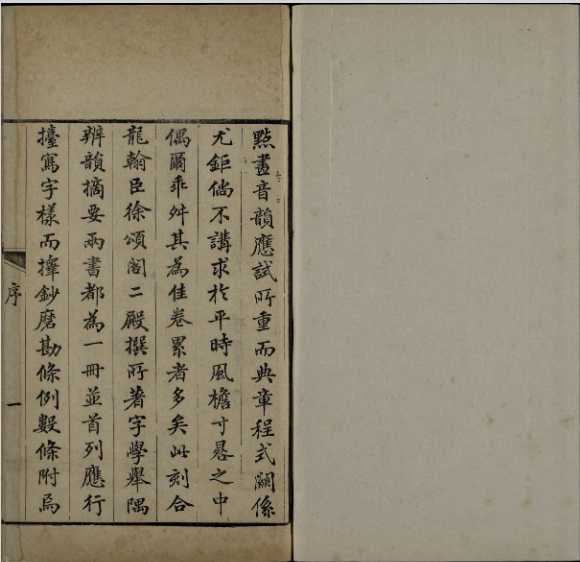 點畫音韻應試所重而典章程式關係
尤鉅倘不講求於平時風檐寸晷之中
偶爾乖舛其為佳卷累者多矣此刻合
龍翰臣徐頌閣二殿撰所著字學舉隅
辨韻摘要兩書都為一冊並首列應行
擡寫字樣而擇鈔磨勘條例數條附焉
序
一